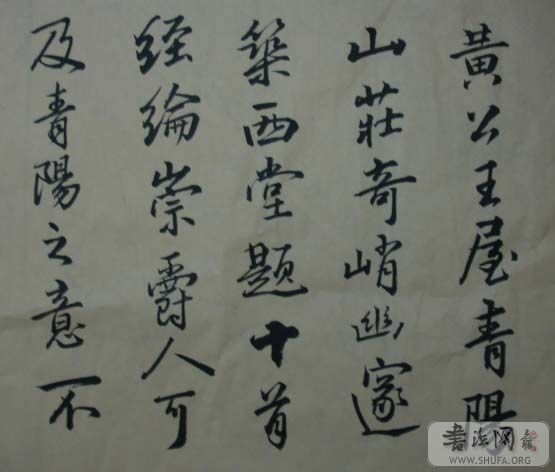 黄公王屋青陽
山莊奇峭幽邃
築西堂題十首
经綸崇爵人可
及青陽之意一不
書法网
WWW.SHUFA.ORG